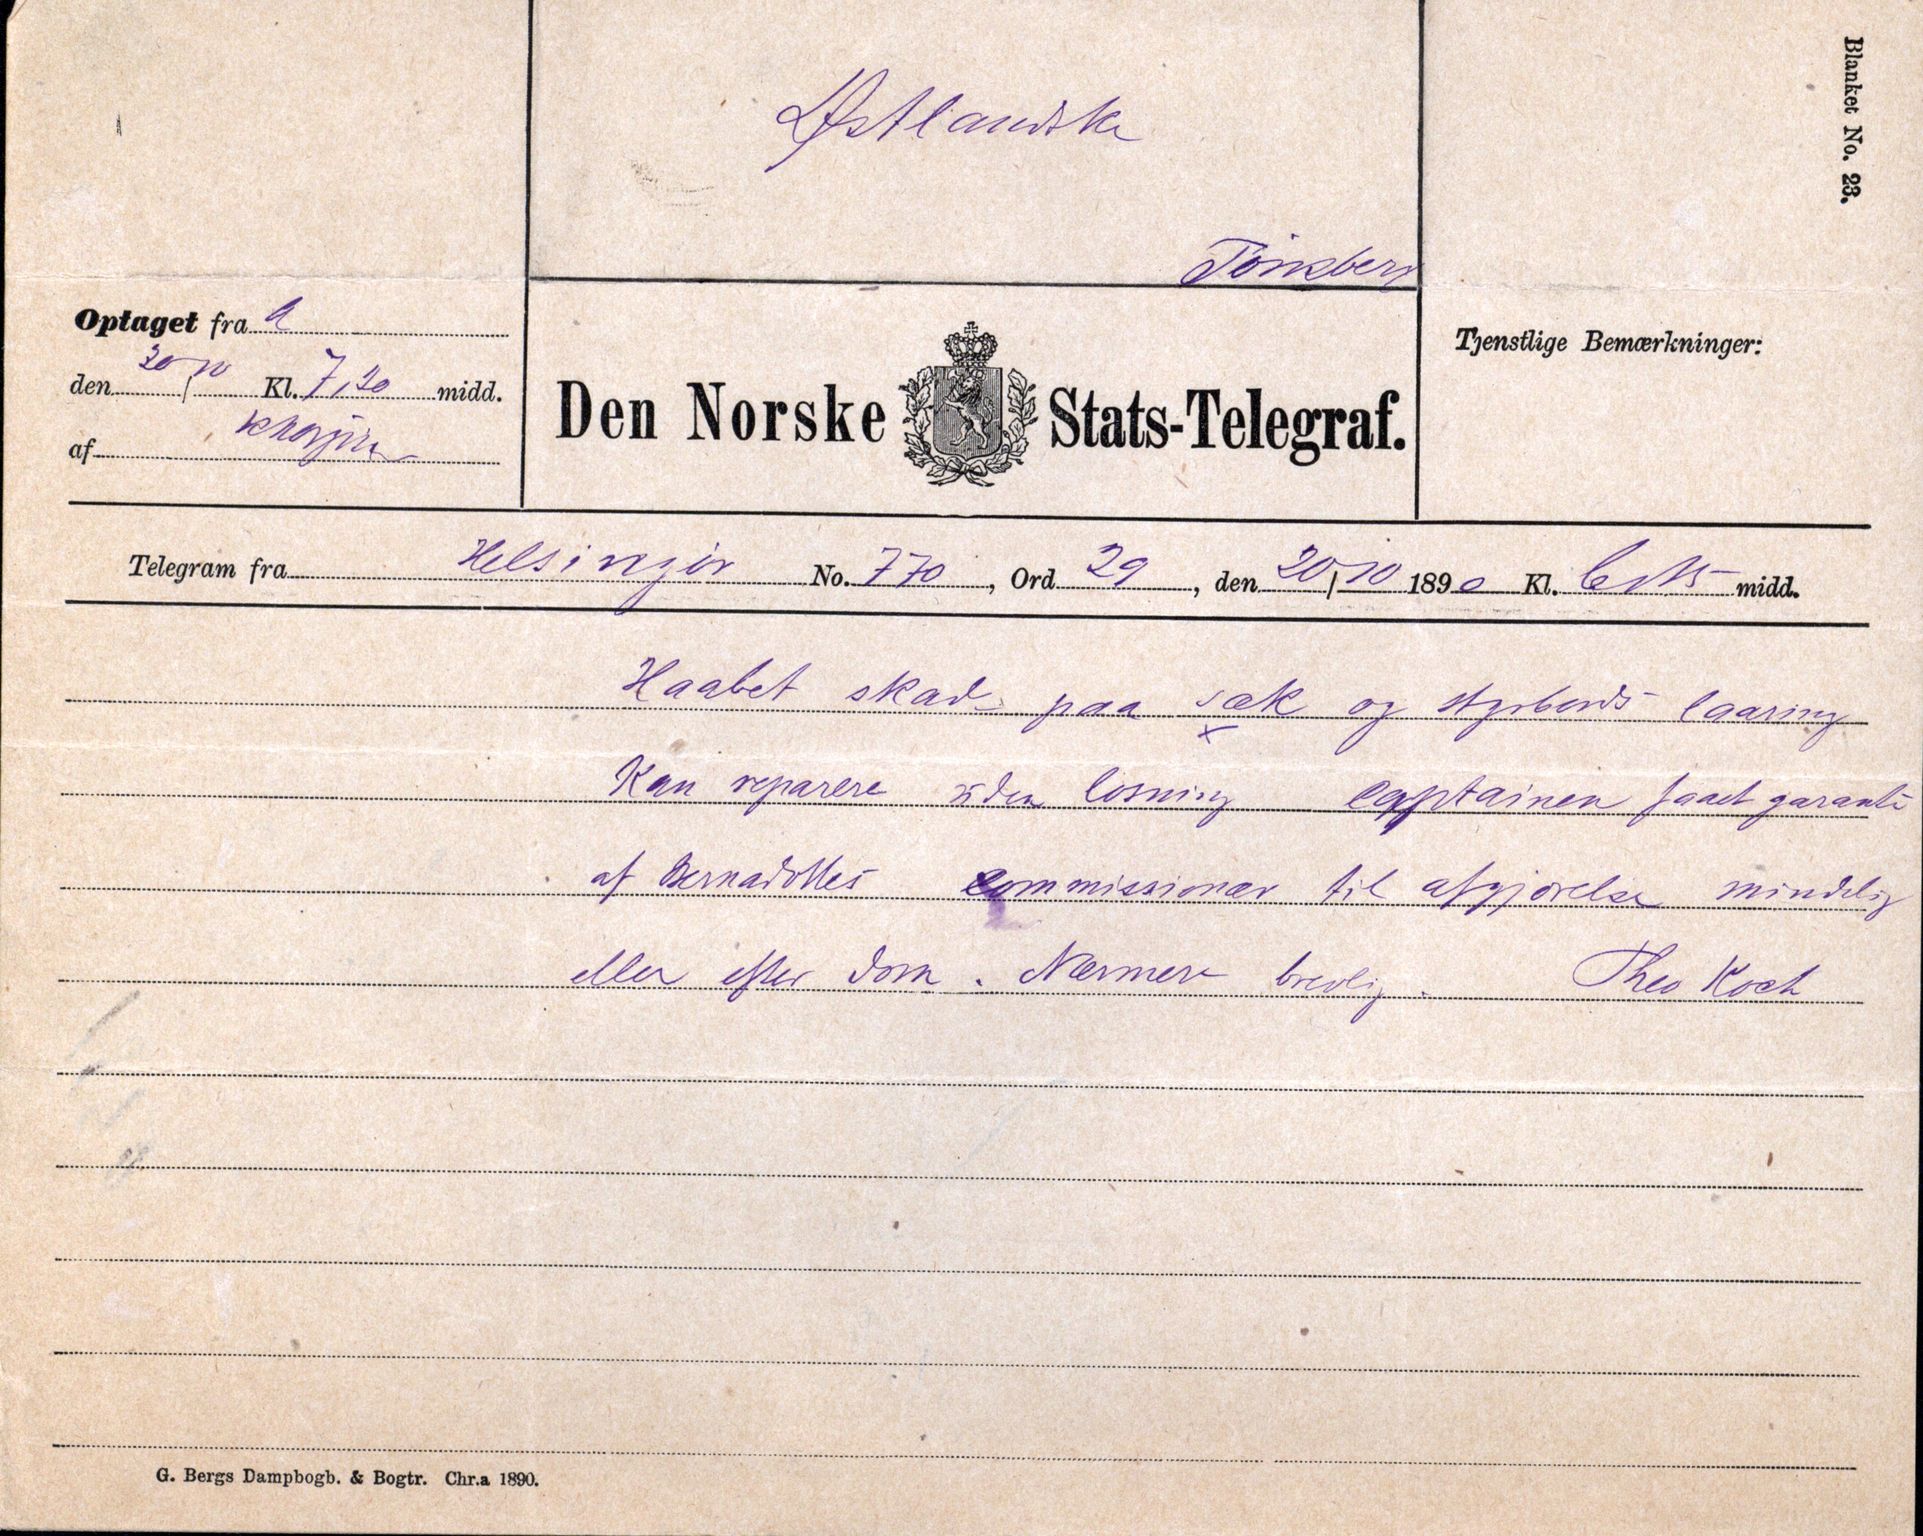 Blanket No. 23.
Østlandske
Tönsberg
Optaget fra a
den 20/10 Kl. 7,20 midd.
af
Den Norske Stats-Telegraf.
Tjenstlige Bemærkninger:
Telegram fra Helsingör No. 770, Ord 29, den 20/10 1890 Kl. 6,15 midd.
Haabet skad paa sæk og styrbords laaring
Kan reparere uden losning captainen faaet garanti
af Bernadottes commissionær til afgjørelse mindelig
eller efter dom. Nærmere brevlig. Theo Koch
G. Bergs Dampbogb. & Bogtr. Chr.a 1890.